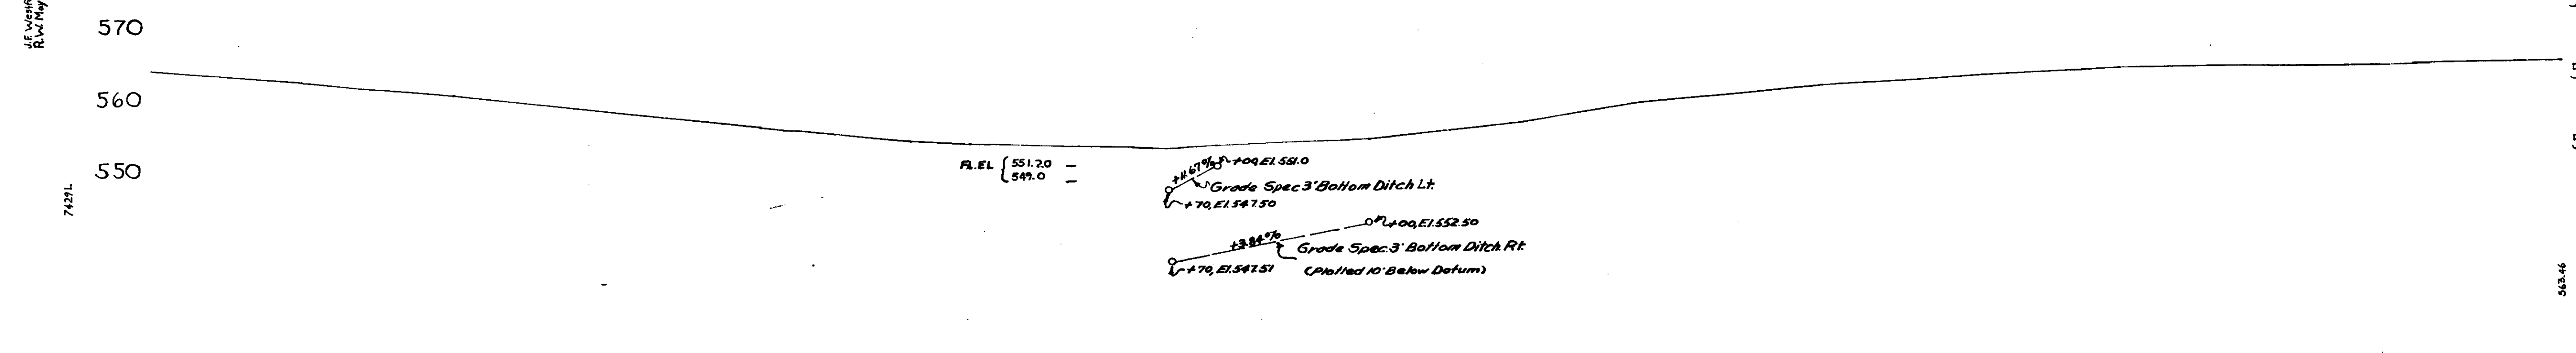 570
560
550
7429L
Fl. EL { 551.20
549.0
+11.67%
+00, El. 551.0
Grade Spec 3' Bottom Ditch Lt.
+70, El. 547.50
+3.84%
+00, El. 552.50
Grade Spec. 3' Bottom Ditch Rt.
+70, El. 547.51
(Plotted 10' Below Datum)
563.46
R.W. May